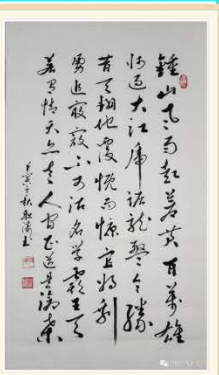 鍾山风雨起蒼黄百万雄
师过大江虎踞龙盘今勝
昔天翻地覆慨而慷宜将剩
勇追窮寇不可沽名学霸王天
若有情天亦老人间正道是滄桑